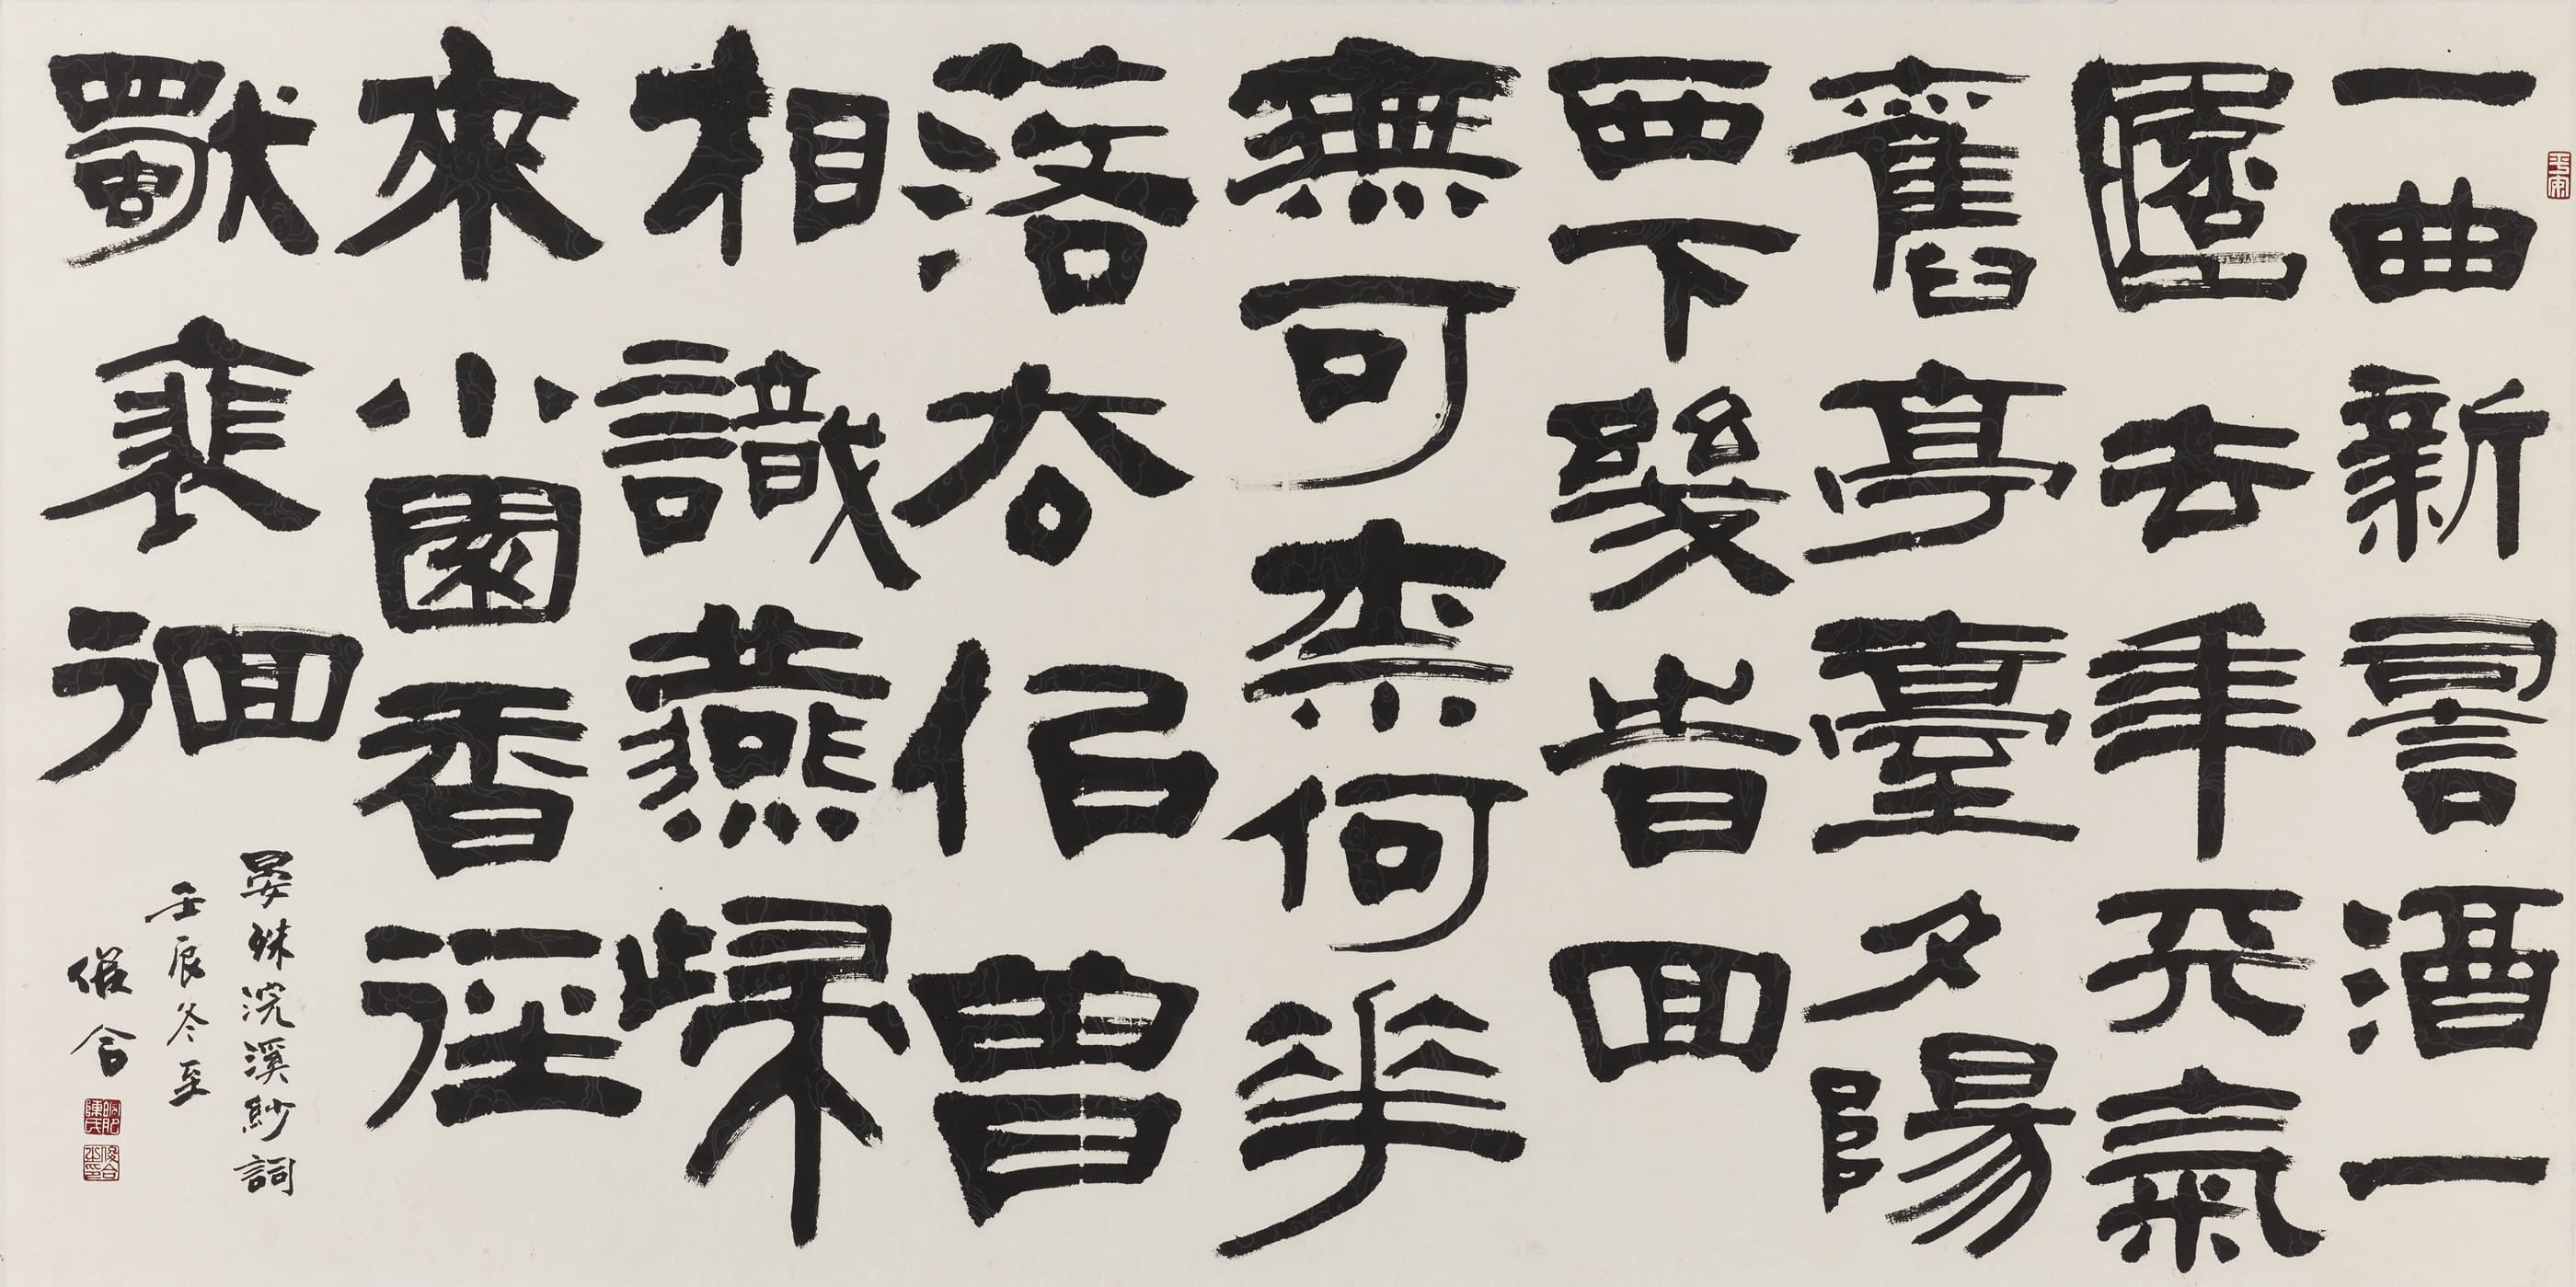 一曲新䛐酒一
去年天氣
舊亭臺夕陽
西下幾旹回
無可柰何華
落厺佀曾
相識燕歸
來小園香徑
獨裴徊
晏殊浣溪紗詞
壬辰冬至
俊合